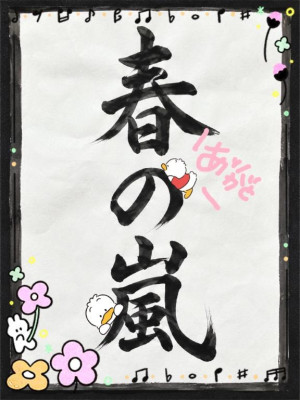 春の嵐
ありがと